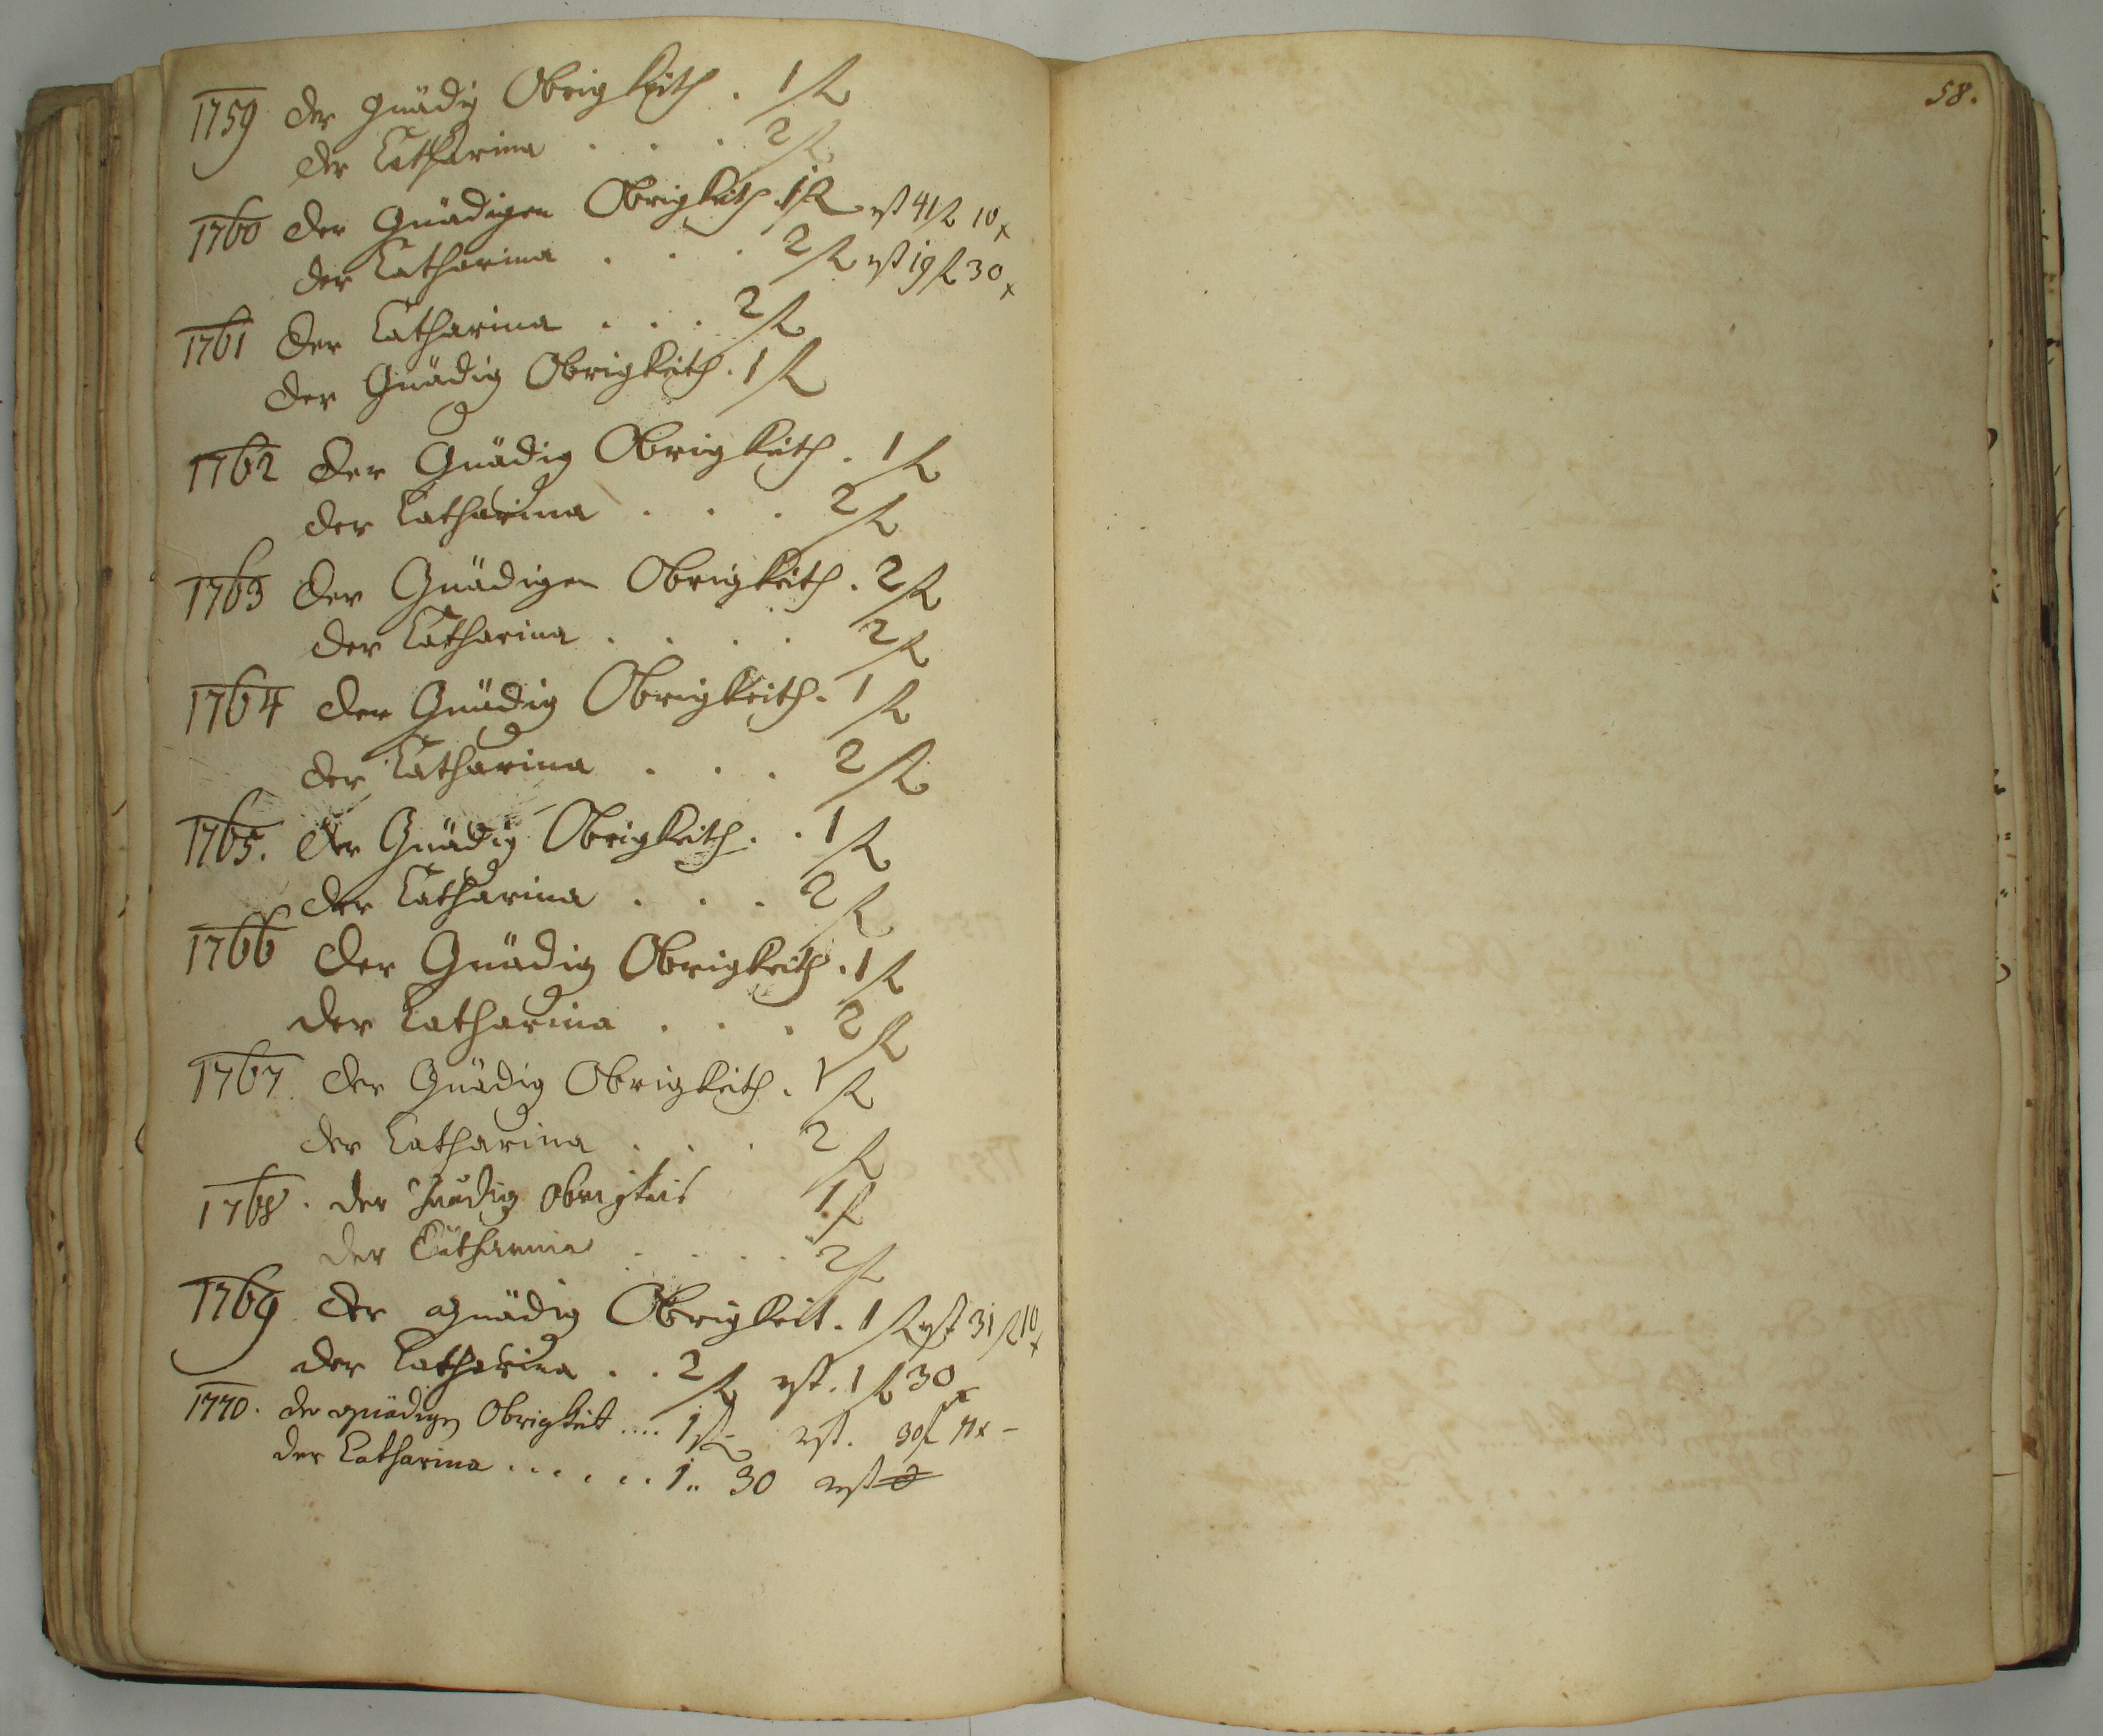 1759 der Gnädig Obrigkeith . 1 fl
der Catharina . . . 2 fl
1760 der Gnädigen Obrigkeith . 1 fl rst 41 fl 10 x
der Catharina . . . 2 fl rst 19 fl 30 x
1761 der Catharina . . . 2 fl
der Gnädig Obrigkeith . 1 fl
1762 der Gnädig Obrigkeith . 1 fl
der Catharina . . . 2 fl
1763 der Gnädigen Obrigkeith . 2 fl
der Catharina . . . . 2 fl
1764 der Gnädig Obrigkeith . 1 fl
der Catharina . . . 2 fl
1765. der Gnädig Obrigkeith . . 1 fl
der Catharina . . . 2 fl
1766 der Gnädig Obrigkeith . 1 fl
der Catharina . . . 2 fl
1767. der Gnädig Obrigkeith . 1 fl
der Catharina . . . 2 fl
1768. der Gnädig obrigkeit 1 fl
der Catharina . . . . 2 fl
1769 der gnädig Obrigkeit . 1 fl rst 31 fl 10 x
der Catharina . . 2 fl rst. 1 fl 30 x
1770. der gnädigen Obrigkeit .... 1 fl rst. 30 fl x –
der Catharina . . . . . . 1 .. 30 rst 0
58.